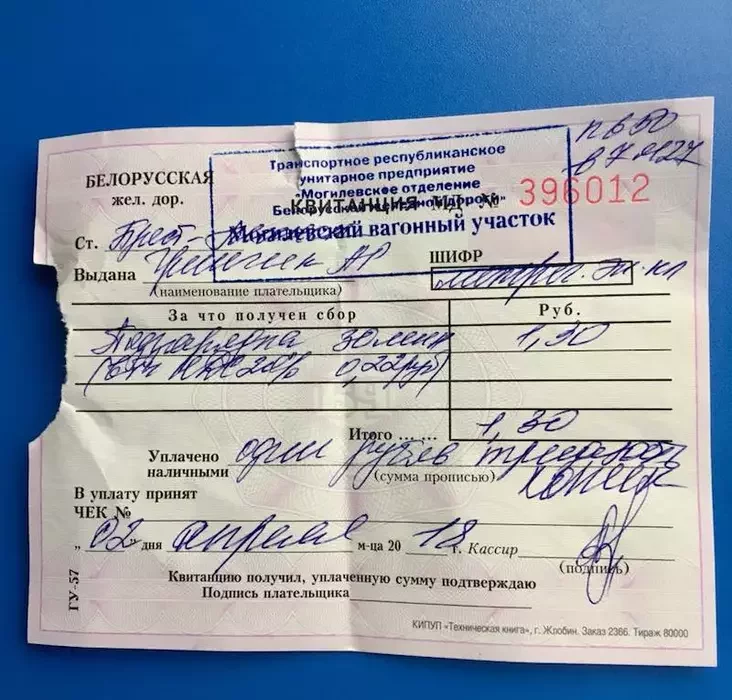 п650
в7
БЕЛОРУССКАЯ
жел. дор.
Транспортное республиканское
унитарное предприятие
"Могилевское отделение
Белорусской железной дороги"
Могилевский вагонный участок
КВИТАНЦИЯ МД №
396012
Ст. Брест-
Выдана АР
(наименование плательщика)
ШИФР
За что получен сбор
Руб.
Подзарядка 30 мин 1,30
(в т.ч. НДС 20% 0,22 руб)
Итого ... ... 1,30
Уплачено наличными один рубль тридцать копеек
(сумма прописью)
В уплату принят
ЧЕК №
„ 02 " дня апреля м-ца 20 18 г. Кассир
(подпись)
Квитанцию получил, уплаченную сумму подтверждаю
Подпись плательщика
ГУ-57
КИПУП «Техническая книга», г. Жлобин. Заказ 2366. Тираж 80000